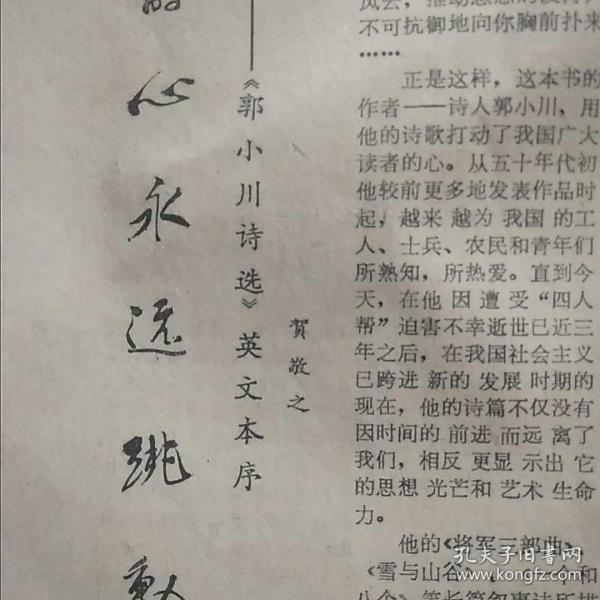 心永远跳动
——《郭小川诗选》英文本序
贺敬之
不可抗御地向你胸前扑来
……
正是这样，这本书的
作者——诗人郭小川，用
他的诗歌打动了我国广大
读者的心。从五十年代初
他较前更多地发表作品时
起，越来 越为 我国 的工
人、士兵、农民和青年们
所熟知，所热爱。直到今
天，在他 因 遭 受 “四人
帮”迫害不幸逝世已近三
年之后，在我国社会主义
已跨进 新的 发展 时期的
现在，他的诗篇不仅没有
因时间的 前进 而远 离了
我们，相反 更显 示出 它
的思想 光芒和 艺术 生命
力。
他的《将军三部曲》、
《雪与山谷》、《一个和
八个》等长篇叙事诗所描
孔夫子旧书网
www.kongfz.com